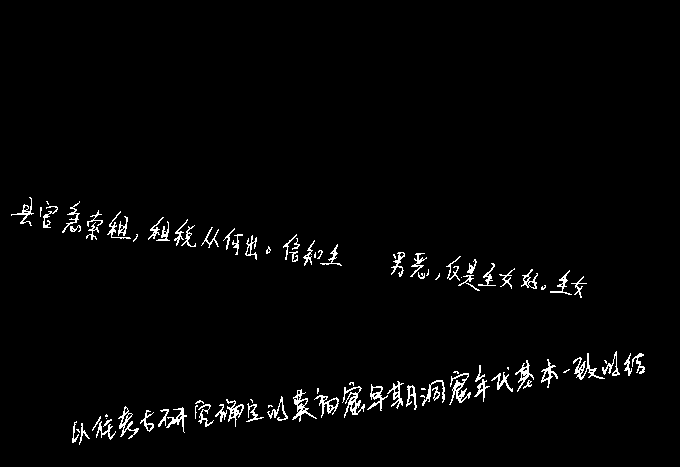 县官急索租，租税从何出。信知生 男恶，反是生女好。生女
以往考古研究确定的莫高窟早期洞窟年代基本一致的结